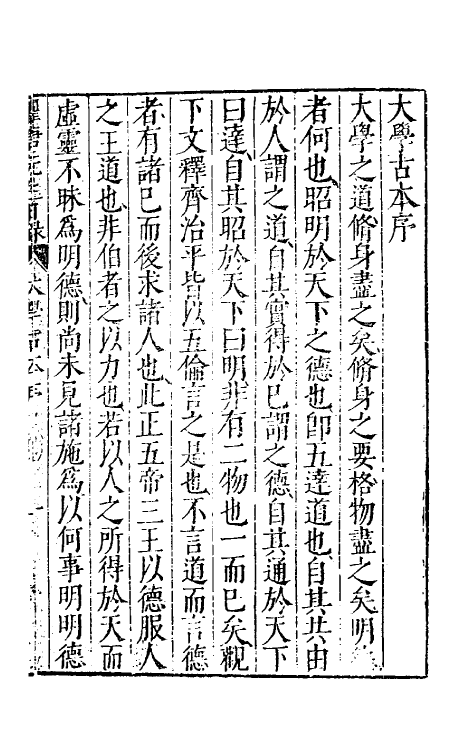 大學古本序
大學之道脩身盡之矣脩身之要格物盡之矣明
者何也昭明於天下之德也卽五達道也自其共由
於人謂之道自其實得於已謂之德自其通於天下
曰達自其昭於天下曰明非有二物也一而已矣觀
下文釋齊治平皆以五倫言之是也不言道而言德
者有諸已而後求諸人也此正五帝三王以德服人
之王道也非伯者之以力也若以人之所得於天而
虛靈不昧爲明德則尚未見諸施爲以何事明明德
大學古本序